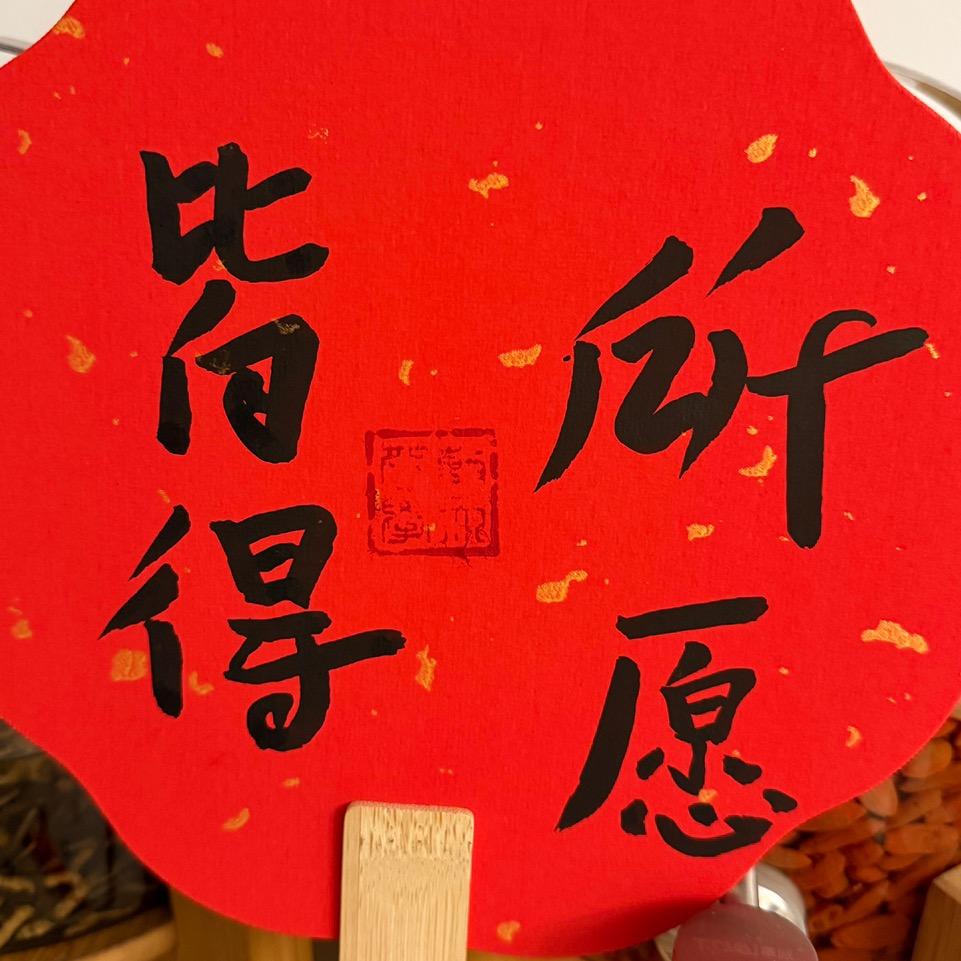 所愿
皆得